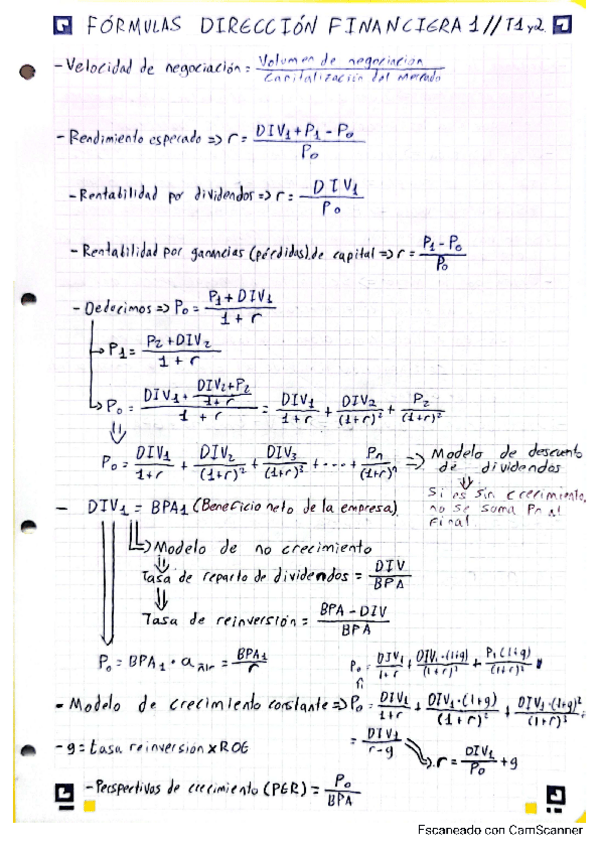 FÓRMULAS DIRECCIÓN FINANCIERA 1 // T1 y 2
- Velocidad de negociación = Volumen de negociación / Capitalización del mercado
- Rendimiento esperado => r = (DIV₁ + P₁ - P₀) / P₀
- Rentabilidad por dividendos => r = DIV₁ / P₀
- Rentabilidad por ganancias (pérdidas) de capital => r = (P₁ - P₀) / P₀
- Deducimos => P₀ = (P₁ + DIV₁) / (1 + r)
P₁ = (P₂ + DIV₂) / (1 + r)
P₀ = (DIV₁ + (DIV₂ + P₂) / (1 + r)) / (1 + r) = DIV₁ / (1+r) + DIV₂ / (1+r)² + P₂ / (1+r)²
P₀ = DIV₁ / (1+r) + DIV₂ / (1+r)² + DIV₃ / (1+r)³ + .... + Pn / (1+r)ⁿ => Modelo de descuento de dividendos
Si es sin crecimiento,
no se suma Pn al
final
- DIV₁ = BPA1 (Beneficio neto de la empresa)
Modelo de no crecimiento
Tasa de reparto de dividendos = DIV / BPA
Tasa de reinversión = (BPA - DIV) / BPA
P₀ = BPA₁ · a = BPA₁ / r
P₀ = DIV₁ / (1+r) + DIV₁·(1+g) / (1+r)² + P₁(1+g) / (1+r)²
- Modelo de crecimiento constante => P₀ = DIV₁ / (1+r) + DIV₁·(1+g) / (1+r)² + DIV₁·(1+g)² /
= DIV₁ / (r-g)
r = DIV₁ / P₀ + g
- g = tasa reinversión x ROE
- Perspectivos de crecimiento (PER) = P₀ / BPA
Escaneado con CamScanner